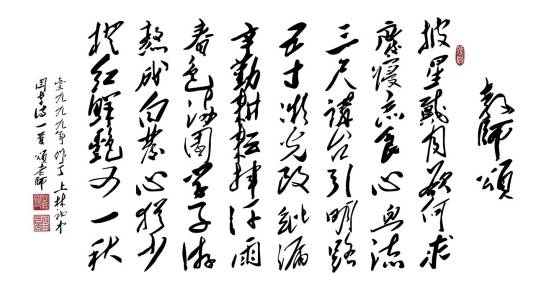 教师颂
披星戴月欲何求
废寝忘食心血流
三尺讲台引明路
五寸激光改纰漏
辛勤耕耘挥汗雨
春色满园学子游
熬成白发心犹少
红鲜艳又一秋
壹九九九年作于上林初中
一首颂老师